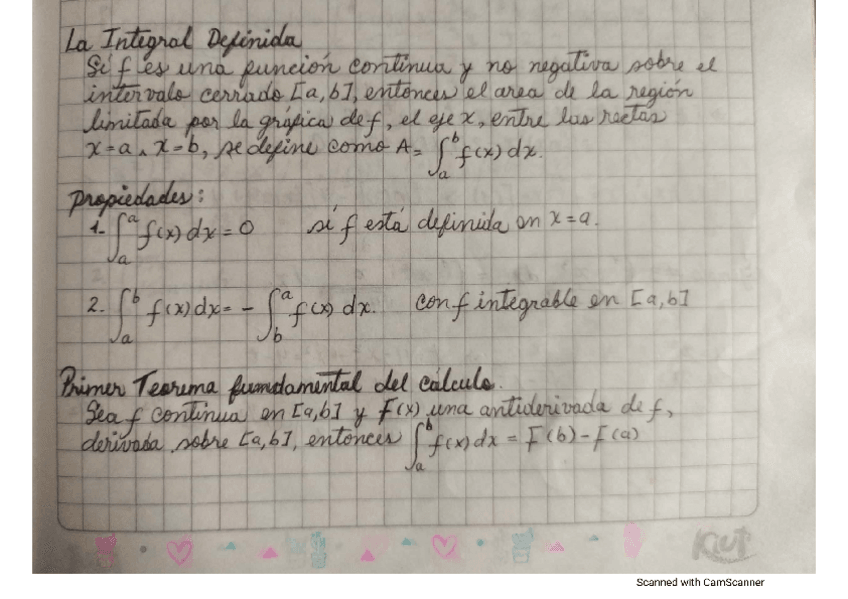 La Integral Definida
Si f es una función continua y no negativa sobre el
intervalo cerrado [a,b], entonces el area de la región
limitada por la gráfica de f, el eje x, entre las rectas
x=a ∧ x=b, se define como A= ∫_a^b f(x) dx.
Propiedades:
1. ∫_a^a f(x) dx = 0 si f está definida en x=a.
2. ∫_a^b f(x) dx = - ∫_b^a f(x) dx. con f integrable en [a,b]
Primer Teorema fundamental del cálculo.
Sea f continua en [a,b] y F(x) una antiderivada de f,
derivada sobre [a,b], entonces ∫_a^b f(x) dx = F(b)-F(a)
Kiut
Scanned with CamScanner